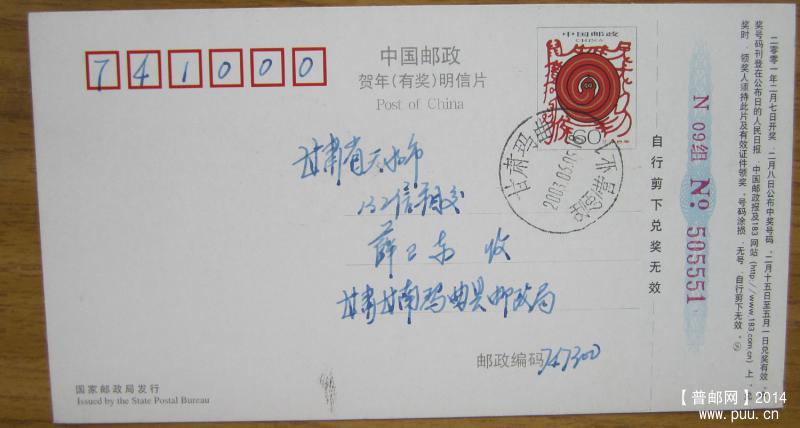 741000
中国邮政
贺年(有奖)明信片
Post of China
中国邮政
CHINA
60分
甘肃玛曲
2003.05.05
甘肃省天水市
132信箱
薛卫东 收
甘肃甘南玛曲县邮政局
邮政编码 747300
国家邮政局发行
Issued by the State Postal Bureau
自行剪下兑奖无效
N 09组 No: 505551
二零零一年二月七日开奖,二月八日公布中奖号码,二月十五日至五月一日兑奖有效,
奖号码刊登在公布日的人民日报、中国邮政报及183网站(http://www.183.com.cn)上,
奖时,领奖人须持此片及有效证件领奖,号码涂损、无号、自行剪下无效。
【普邮网】2014
www.puu.cn